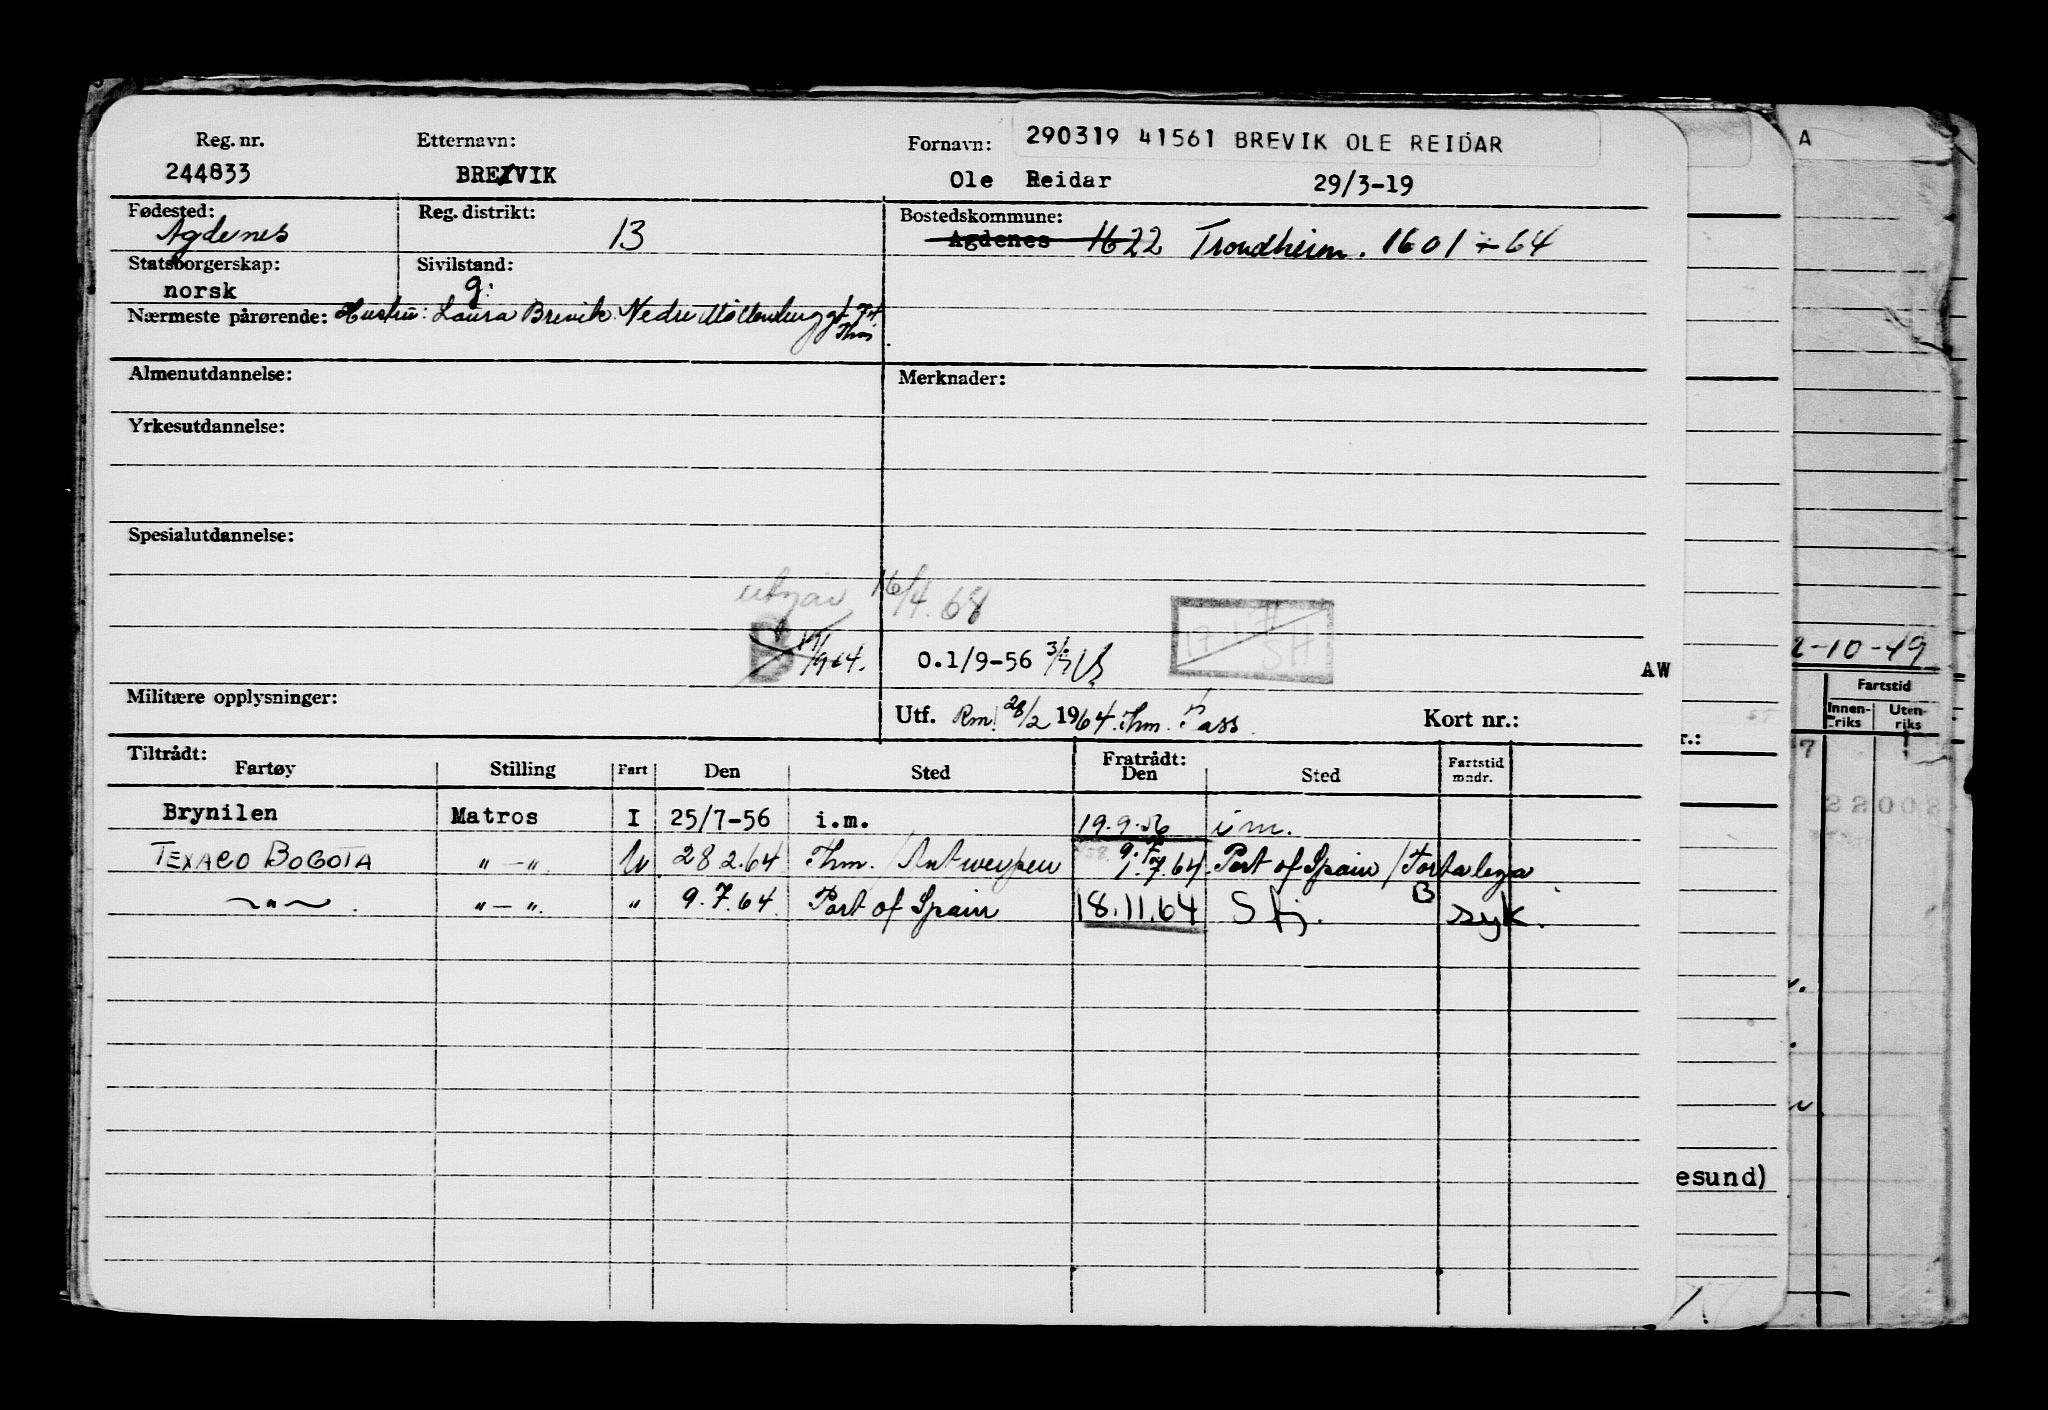 Reg. nr. Etternavn: Fornavn: 290319 41561 BREVIK OLE REIDAR A
244833 BREVIK Ole Reidar 29/3-19
Fødested: Agdenes Reg. distrikt: 13 Bostedskommune: Agdenes 1622 Trondheim. 1601 - 64
Statsborgerskap: norsk Sivilstand: g.
Nærmeste pårørende: Hustru: Laura Brevik Nedre Møllenberg gt
Thm
Almenutdannelse: Merknader:
Yrkesutdannelse:
Spesialutdannelse:
16/4.68
1964. 0.1/9-56 SH AW
2-10-49
Militære opplysninger: Utf. Rm. 28/2 1964. Thm. Pass. Kort nr.: r.:
Fartstid
Innen-riks Uten-riks
Tiltrådt: Fratrådt:
Fartøy Stilling Fart Den Sted Den Sted Fartstid mndr.
Brynilen Matros I 25/7-56 i.m. 19.9.56 i m.
TEXACO BOGOTA " — " U 28 2.64 Thm. / Antwerpen 9.7
1.7.64 Port of Spain / Fortaleza
~ " ~ . " — ". " 9.7.64 Port of Spain 18.11.64 Sfj. B syk.
esund)